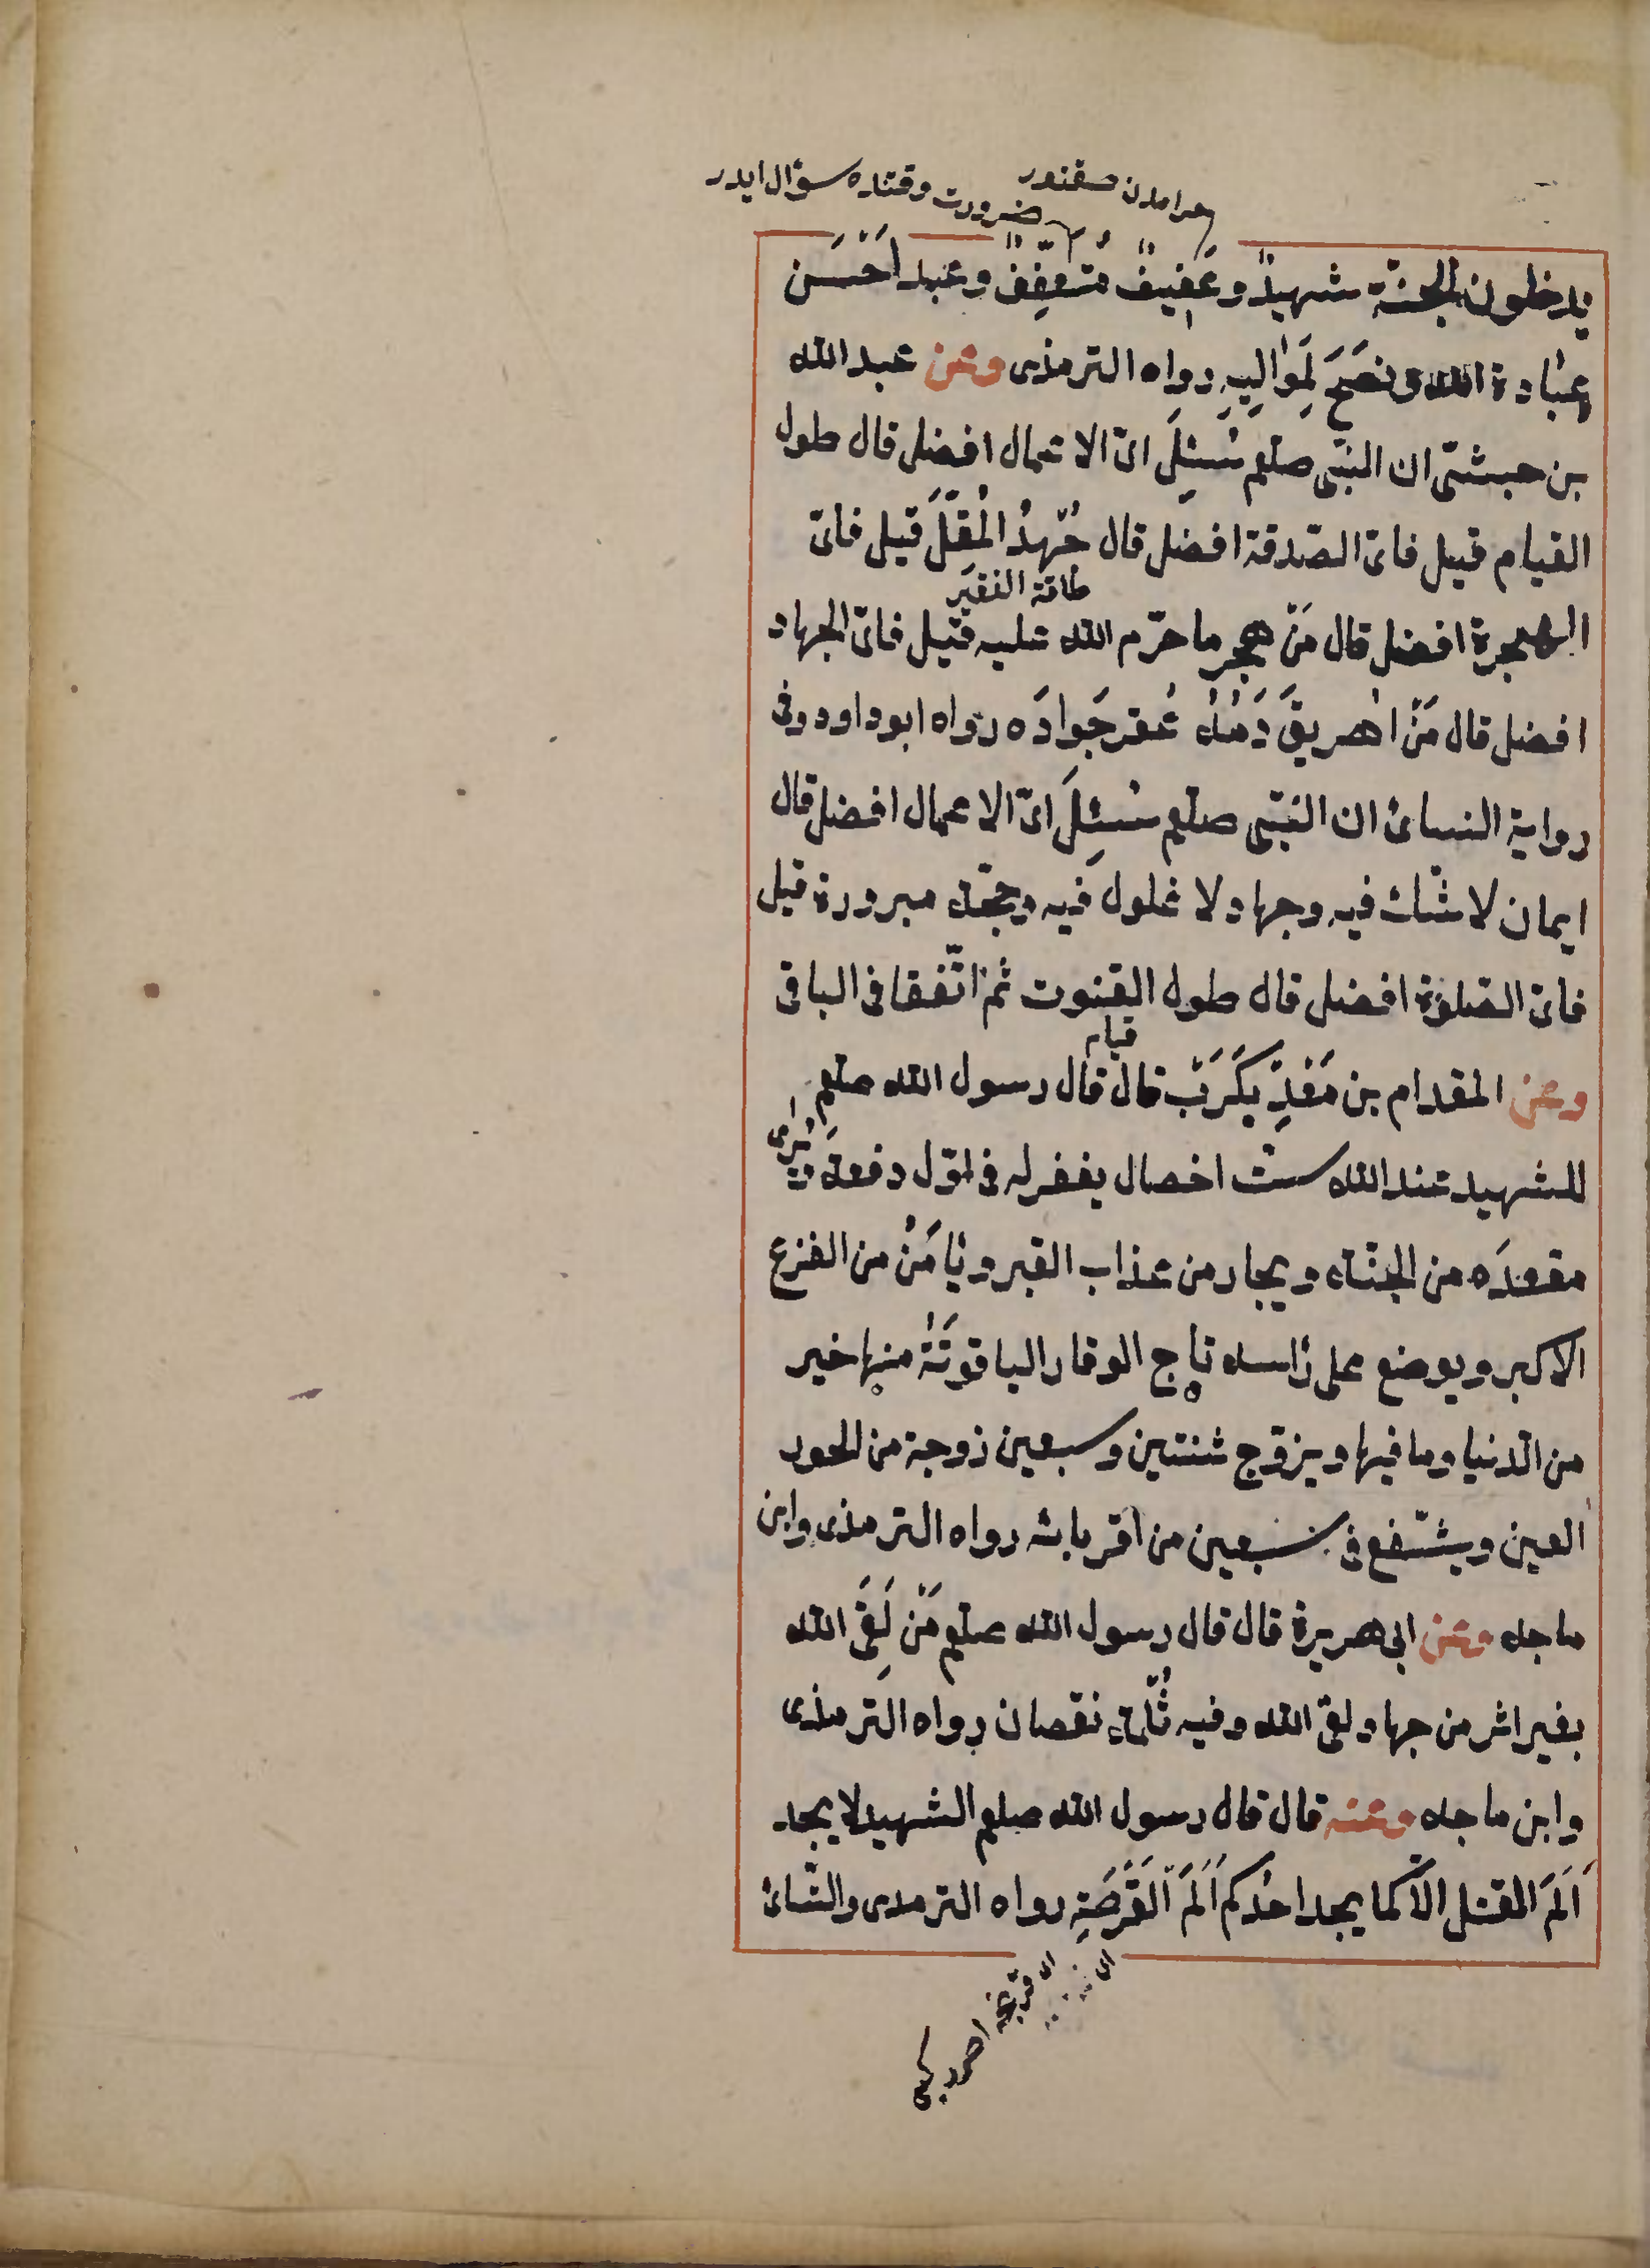 حرامدن صقنور
ضرورت وقتنده سؤال ايدر
يدخلون الجنّة شهيدٌ وعَفيفٌ مُتَعفِّفٌ وعبد اَحْسَنَ
عبادة الله ونصَحَ لِمَواليِهِ رواه الترمذى وعن عبد الله
بن حبشىّ ان النبّى صلعم سُئِلَ اىّ الاعمال افضل قال طول
القيام قيل فاىّ الصّدقة افضل قال جُهدُ الْمُقلّ قيل فاىّ
طاقة الفقير
الهجرة افضل قال مَنْ هجر ما حرّم الله عليه قيل فاىّ الجهاد
افضل قال مَنْ اُهريقَ دَمُهُ عُقر جَوادُه رواه ابو داود وفى
رواية النسائ ان النّبّى صلعم سُئِلَ اىّ الاعمال افضل قال
ايمان لا شّك فيه وجهاد لا غلول فيه وحجّة مبرورة قيل
فاىّ الصّلوة افضل قال طول القنوت ثم اتّفقا فى الباقى
قيام
وعن المقدام بن مَعْدِ يكَرَبْ قال قال رسول الله صلعم
للشهيد عند الله ستّ اخصال يغفر له فى اوّل دفعة ويُرى
مقعدَه من الجنّة ويجار من عذاب القبر ويأمَنُ من الفزع
الاكبر ويوضع على رأسه تاج الوقار الياقوتَةُ منها خير
من الّدنيا وما فيها ويزوّج ثنتين وسبعين زوجة من الحور
العين ويشّفع فى سبعين من اقربائه رواه الترمذى وابن
ماجه وعن ابى هريرة قال قال رسول الله صلعم مَنْ لَقِىَ الله
بغير اثر من جهاد لقى الله وفيه ثُلْمَة نقصان رواه الترمذى
وابن ماجه وعنه قال قال رسول الله صلعم الشهيد لا يجد
اَلَمَ المقتل الاّ كما يجد احدُكم اَلَمَ الَقَرْصَةِ رواه الترمدى والنّسائ
قرنجه اصردیغی